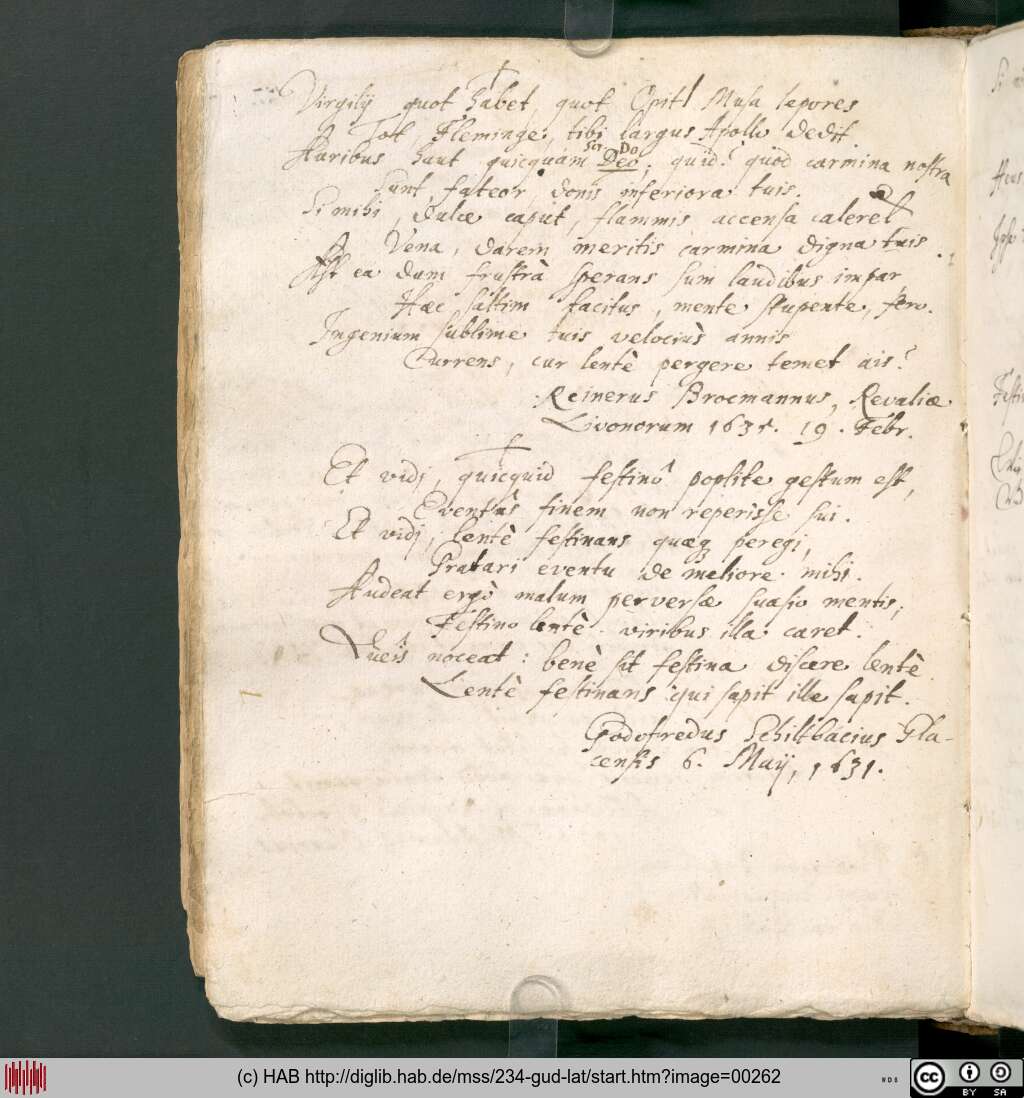 Virgilij quot habet, quot Opitî Musa lepores
Tot, Fleminge, tibi largus Apollo dedit.
Auribus haut quicquam Deo; quid? quod carmina nostra
Sunt, fateor donis inferiora tuis.
Si mihi, dulce caput, flammis accensa caleret
Vena, darem meritis carmina digna tuis.
Ast ea dum frustrà sperans sum laudibus impar
Hæc saltim tacitus, mente stupente, fero.
Ingenium sublime tuis velociùs annis
Currens, cur lentè pergere temet ais?
Reinerus Brocmannus, Revaliæ
Livonorum 1631. 19. Febr.
Et vidj, quicquid festinô poplite gestum est,
Eventûs finem non reperisse sui.
Et vidj, lentè festinans quæq; peregi,
Gratari eventu de meliore mihi.
Audeat ergò malum perversæ suasio mentis,
Festino lentè viribus illa caret.
Queîs noceat: benè sit festina discere lentè
Lentè festinans qui sapit ille sapit.
Godofredus Schiltbacius Gla-
censis 6. Maij, 1631.
(c) HAB http://diglib.hab.de/mss/234-gud-lat/start.htm?image=00262
cc BY SA